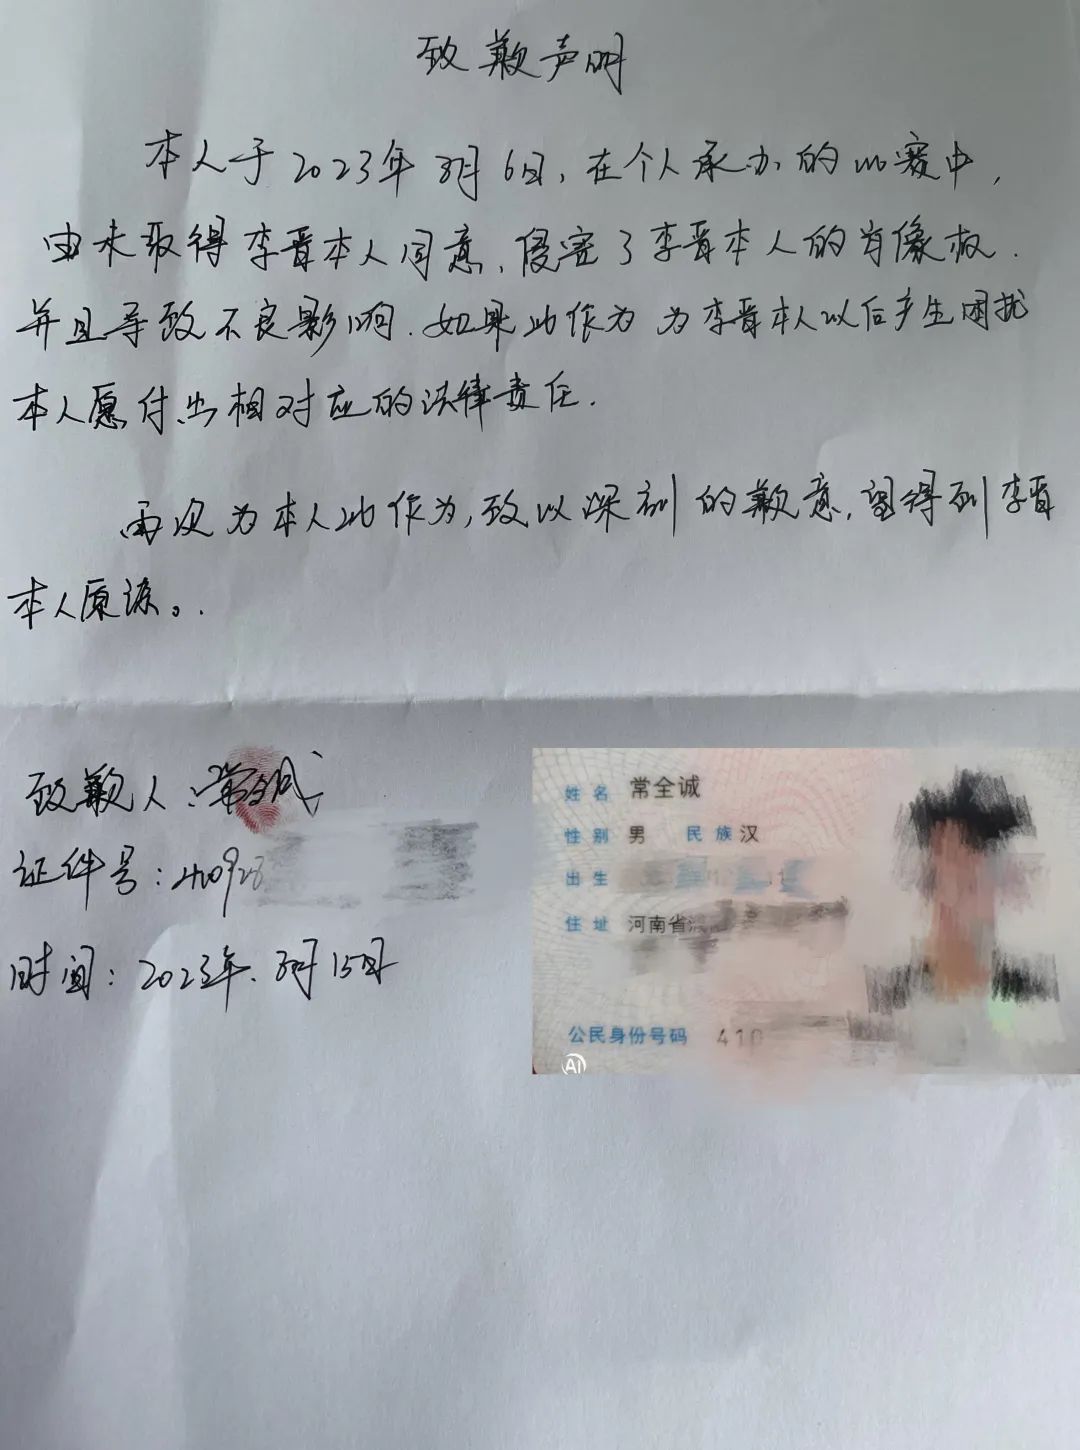 致歉声明
本人于2023年8月6日，在个人承办的比赛中，
由未取得李晋本人同意，侵害了李晋本人的肖像权.
并且导致不良影响.如果此作为 为李晋本人以后产生困扰
本人愿付出相对应的法律责任.
再次为本人此作为，致以深刻的歉意，望得到李晋
本人原谅。.
致歉人：常全诚
证件号：410928
时间：2023年.8月15日
姓名 常全诚
性别 男 民族 汉
出生
住址 河南省
公民身份号码 410
AI